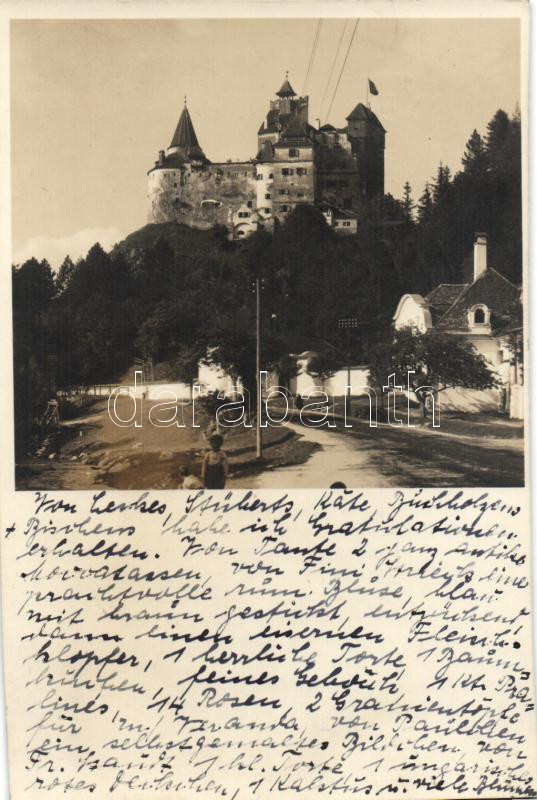 darabanth
Von Leskes, Stüberts, Käte, Buchholzens
+ Bischens habe ich Gratulationen
erhalten. Von Tante 2 ganz antike
Moccatassen, von Fini eine
prachtvolle rum. Bluse, blau
mit braun gestickt, entzückend
dann einen eisernen Fleisch-
klopfer, 1 herrliche Torte, 1 Baum-
kuchen, feines Gebäck, 1 Kt. Pra-
linés, 14 Rosen, 2 Granientöpfe
für m. Veranda, von Paulchen
ein selbstgemaltes Bildchen, von
Fr. 1 kl. Torte 1 ungarisches
rotes Deckchen, 1 Kaktus u. viele Blumen